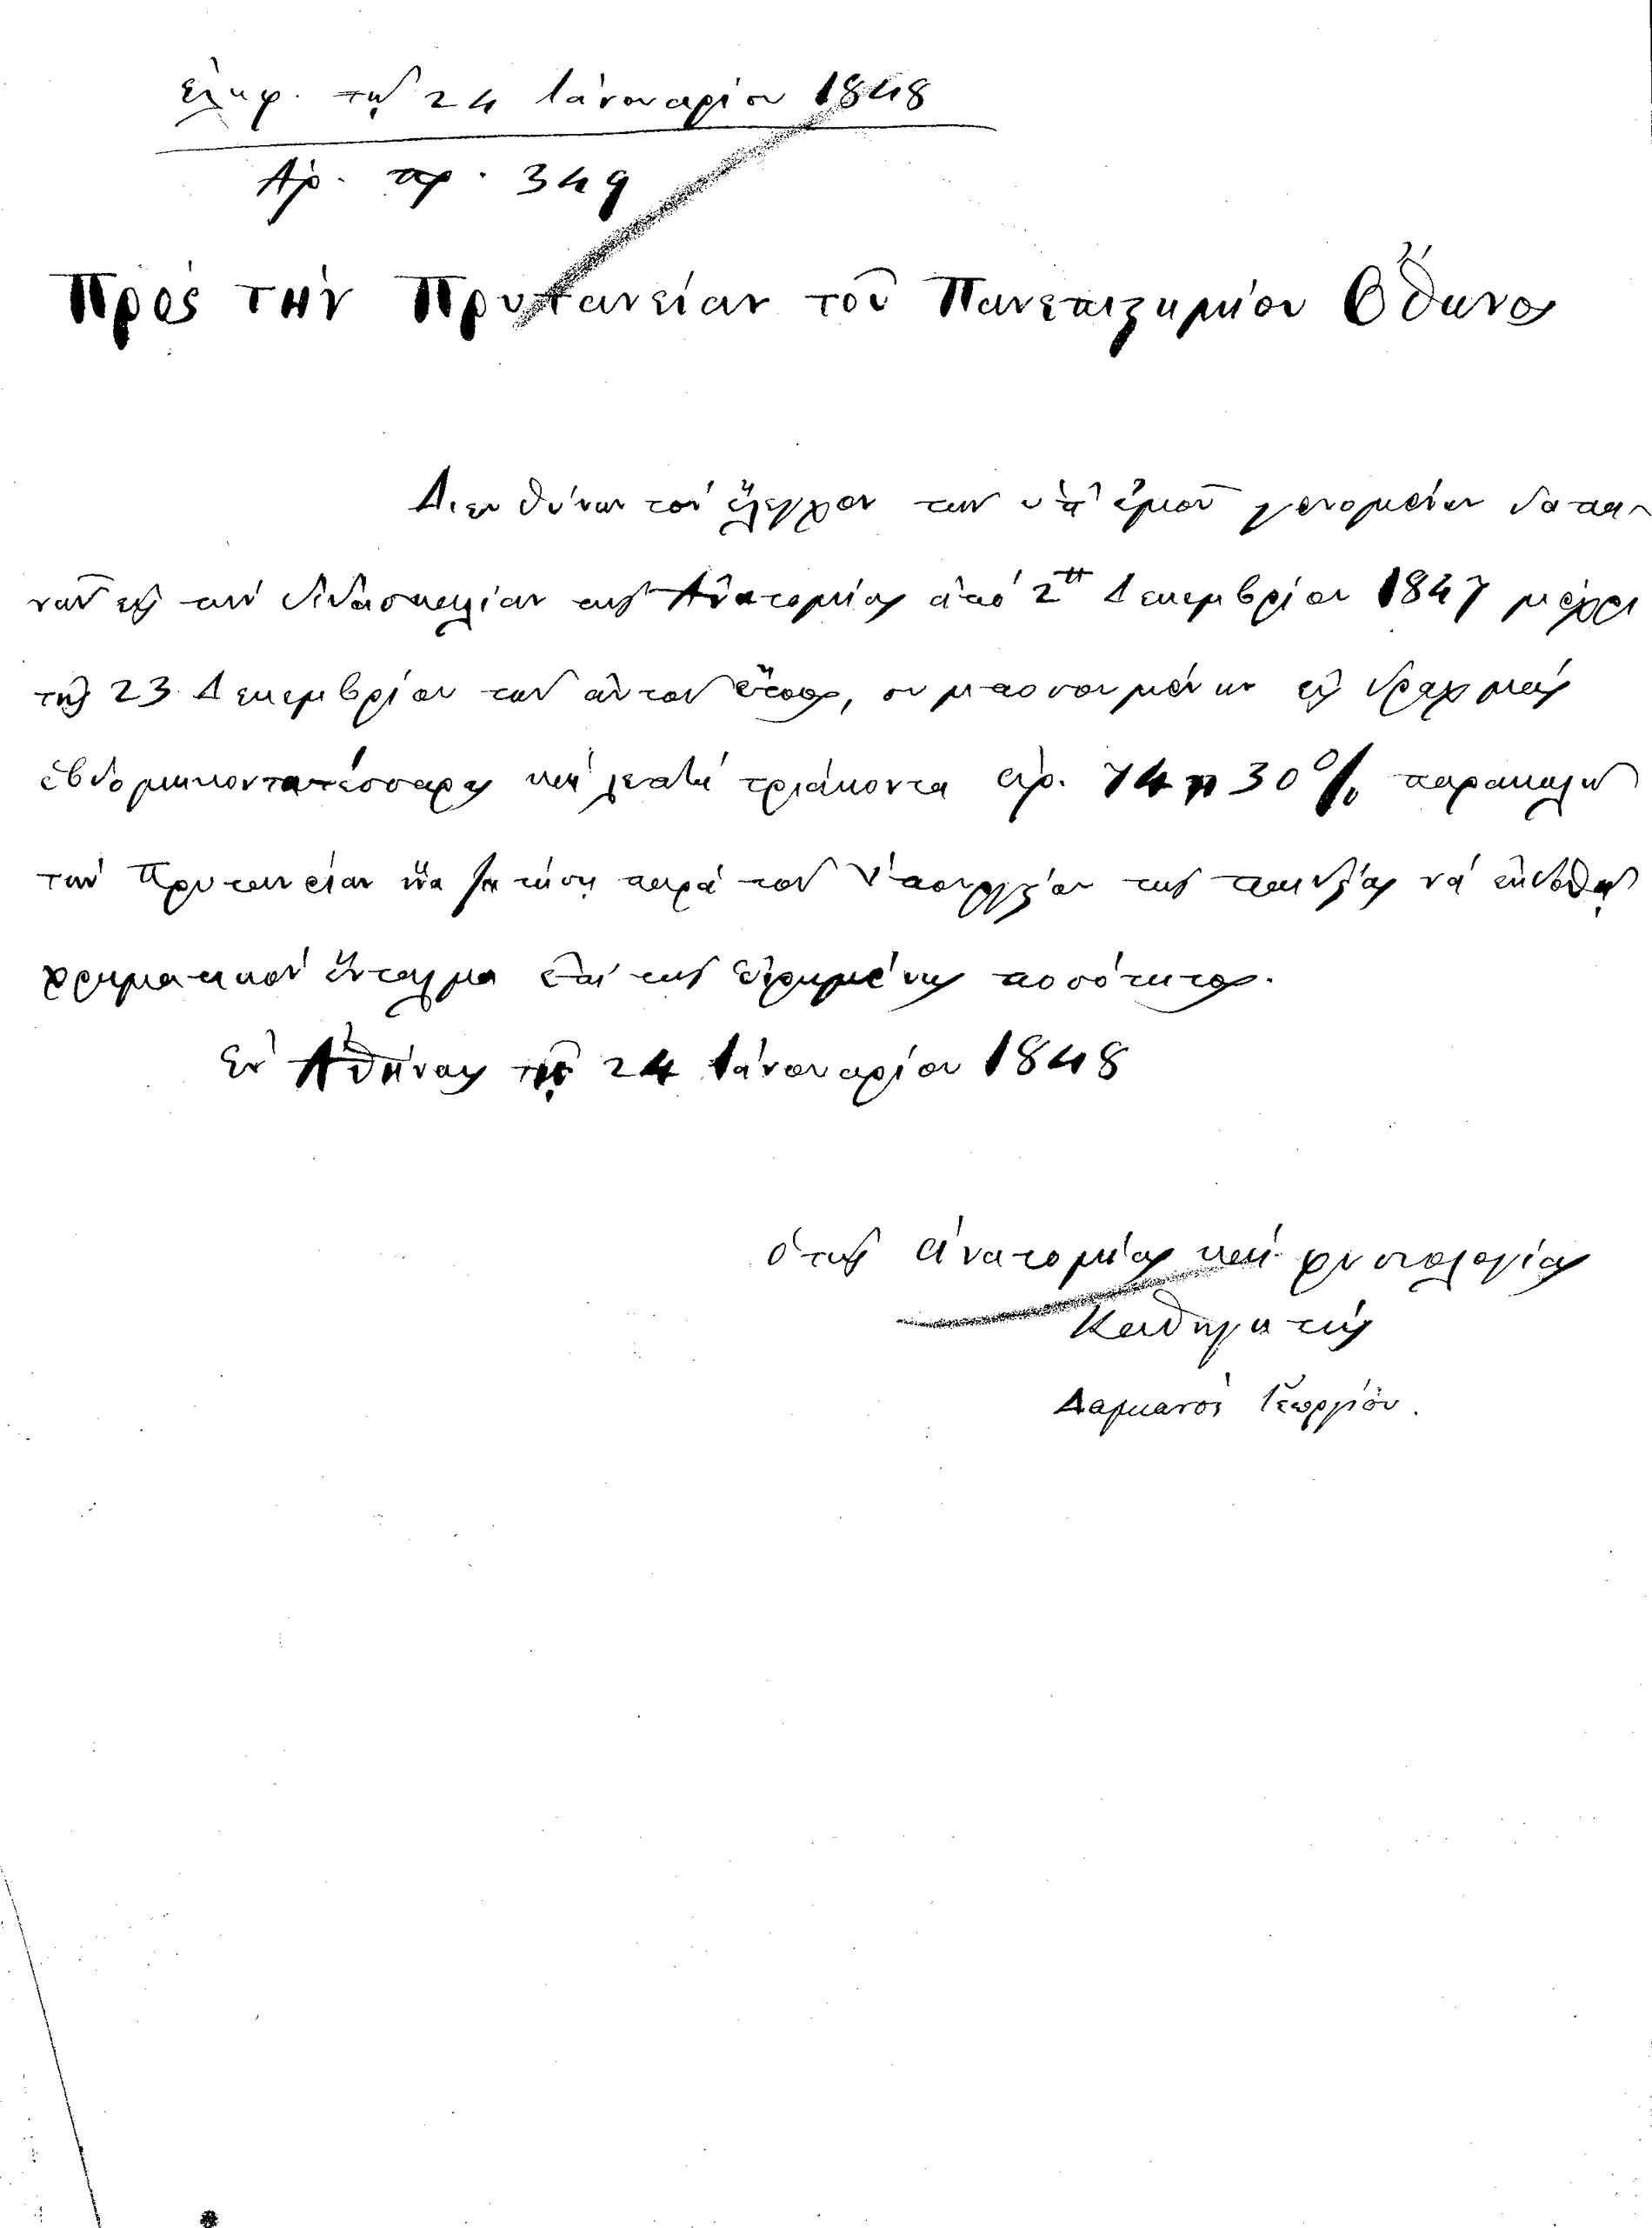 ἐλήφ. τῇ 24 Ἰανουαρίου 1848
Ἀρ. πρ. 349
Πρὸς τὴν Πρυτανείαν τοῦ Πανεπιστημίου Ὄθωνος
Διευθύνων τὸν ἔλεγχον τῶν ὑπ' ἐμοῦ γενομένων δαπα-
νῶν εἰς τὴν διδασκαλίαν τῆς Ἀνατομίας ἀπὸ 2 Δεκεμβρίου 1847 μέχρι
τῆς 23 Δεκεμβρίου τοῦ αὐτοῦ ἔτους, συμποσουμένων εἰς δραχμάς
ἑβδομηκοντατέσσαρας καὶ λεπτὰ τριάκοντα ἀρ. 74 30% παρακαλῶ
τὴν Πρυτανείαν ἵνα ζητήσῃ παρὰ τοῦ Ὑπουργείου τῆς παιδείας νὰ ἐκδοθῇ
χρηματικὸν ἔνταλμα ἐπὶ τῆς εἰρημένης ποσότητος.
Ἐν Ἀθήναις τῇ 24 Ἰανουαρίου 1848
ὁ τῆς ἀνατομίας καὶ φυσιολογίας
Καθηγητής
Δαμιανὸς Γεωργίου.